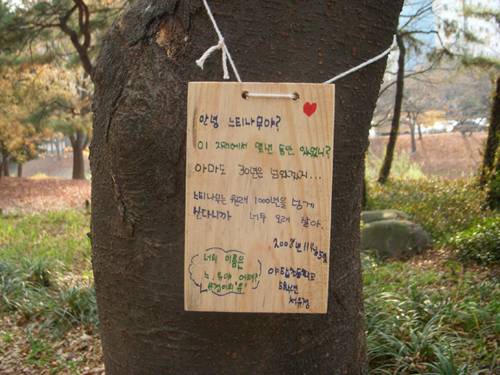 안녕 느티나무야?
이 자리에서 몇년 동안 있었니?
아마도 30년은 넘었겠지...
느티나무는 원래 1000년을 넘게
산다니까 너두 오래 살아.
2008년 11월 5일
너의 이름은
느.유야 어때?
유경이의 '유'
서유경